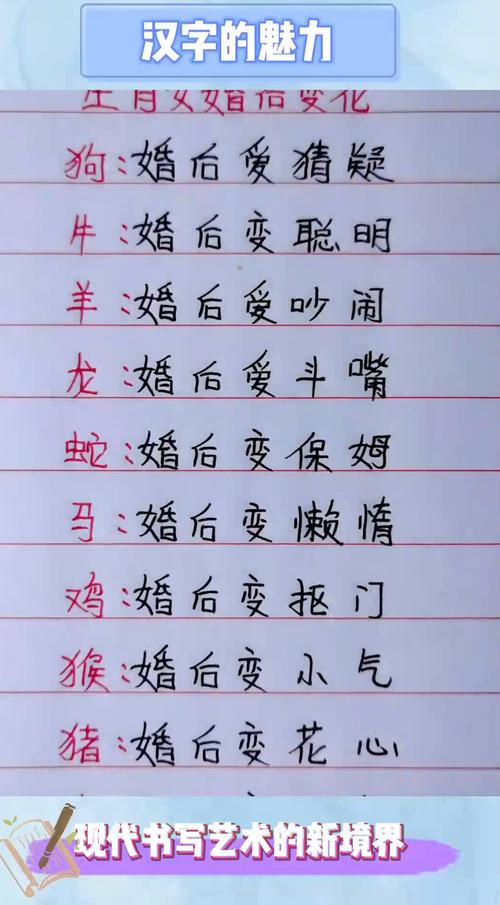 汉字的魅力
生肖女婚后变化
狗:婚后爱猜疑
牛:婚后变聪明
羊:婚后爱吵闹
龙:婚后爱斗嘴
蛇:婚后变保姆
马:婚后变懒惰
鸡:婚后变抠门
猴:婚后变小气
猪:婚后变花心
现代书写艺术的新境界